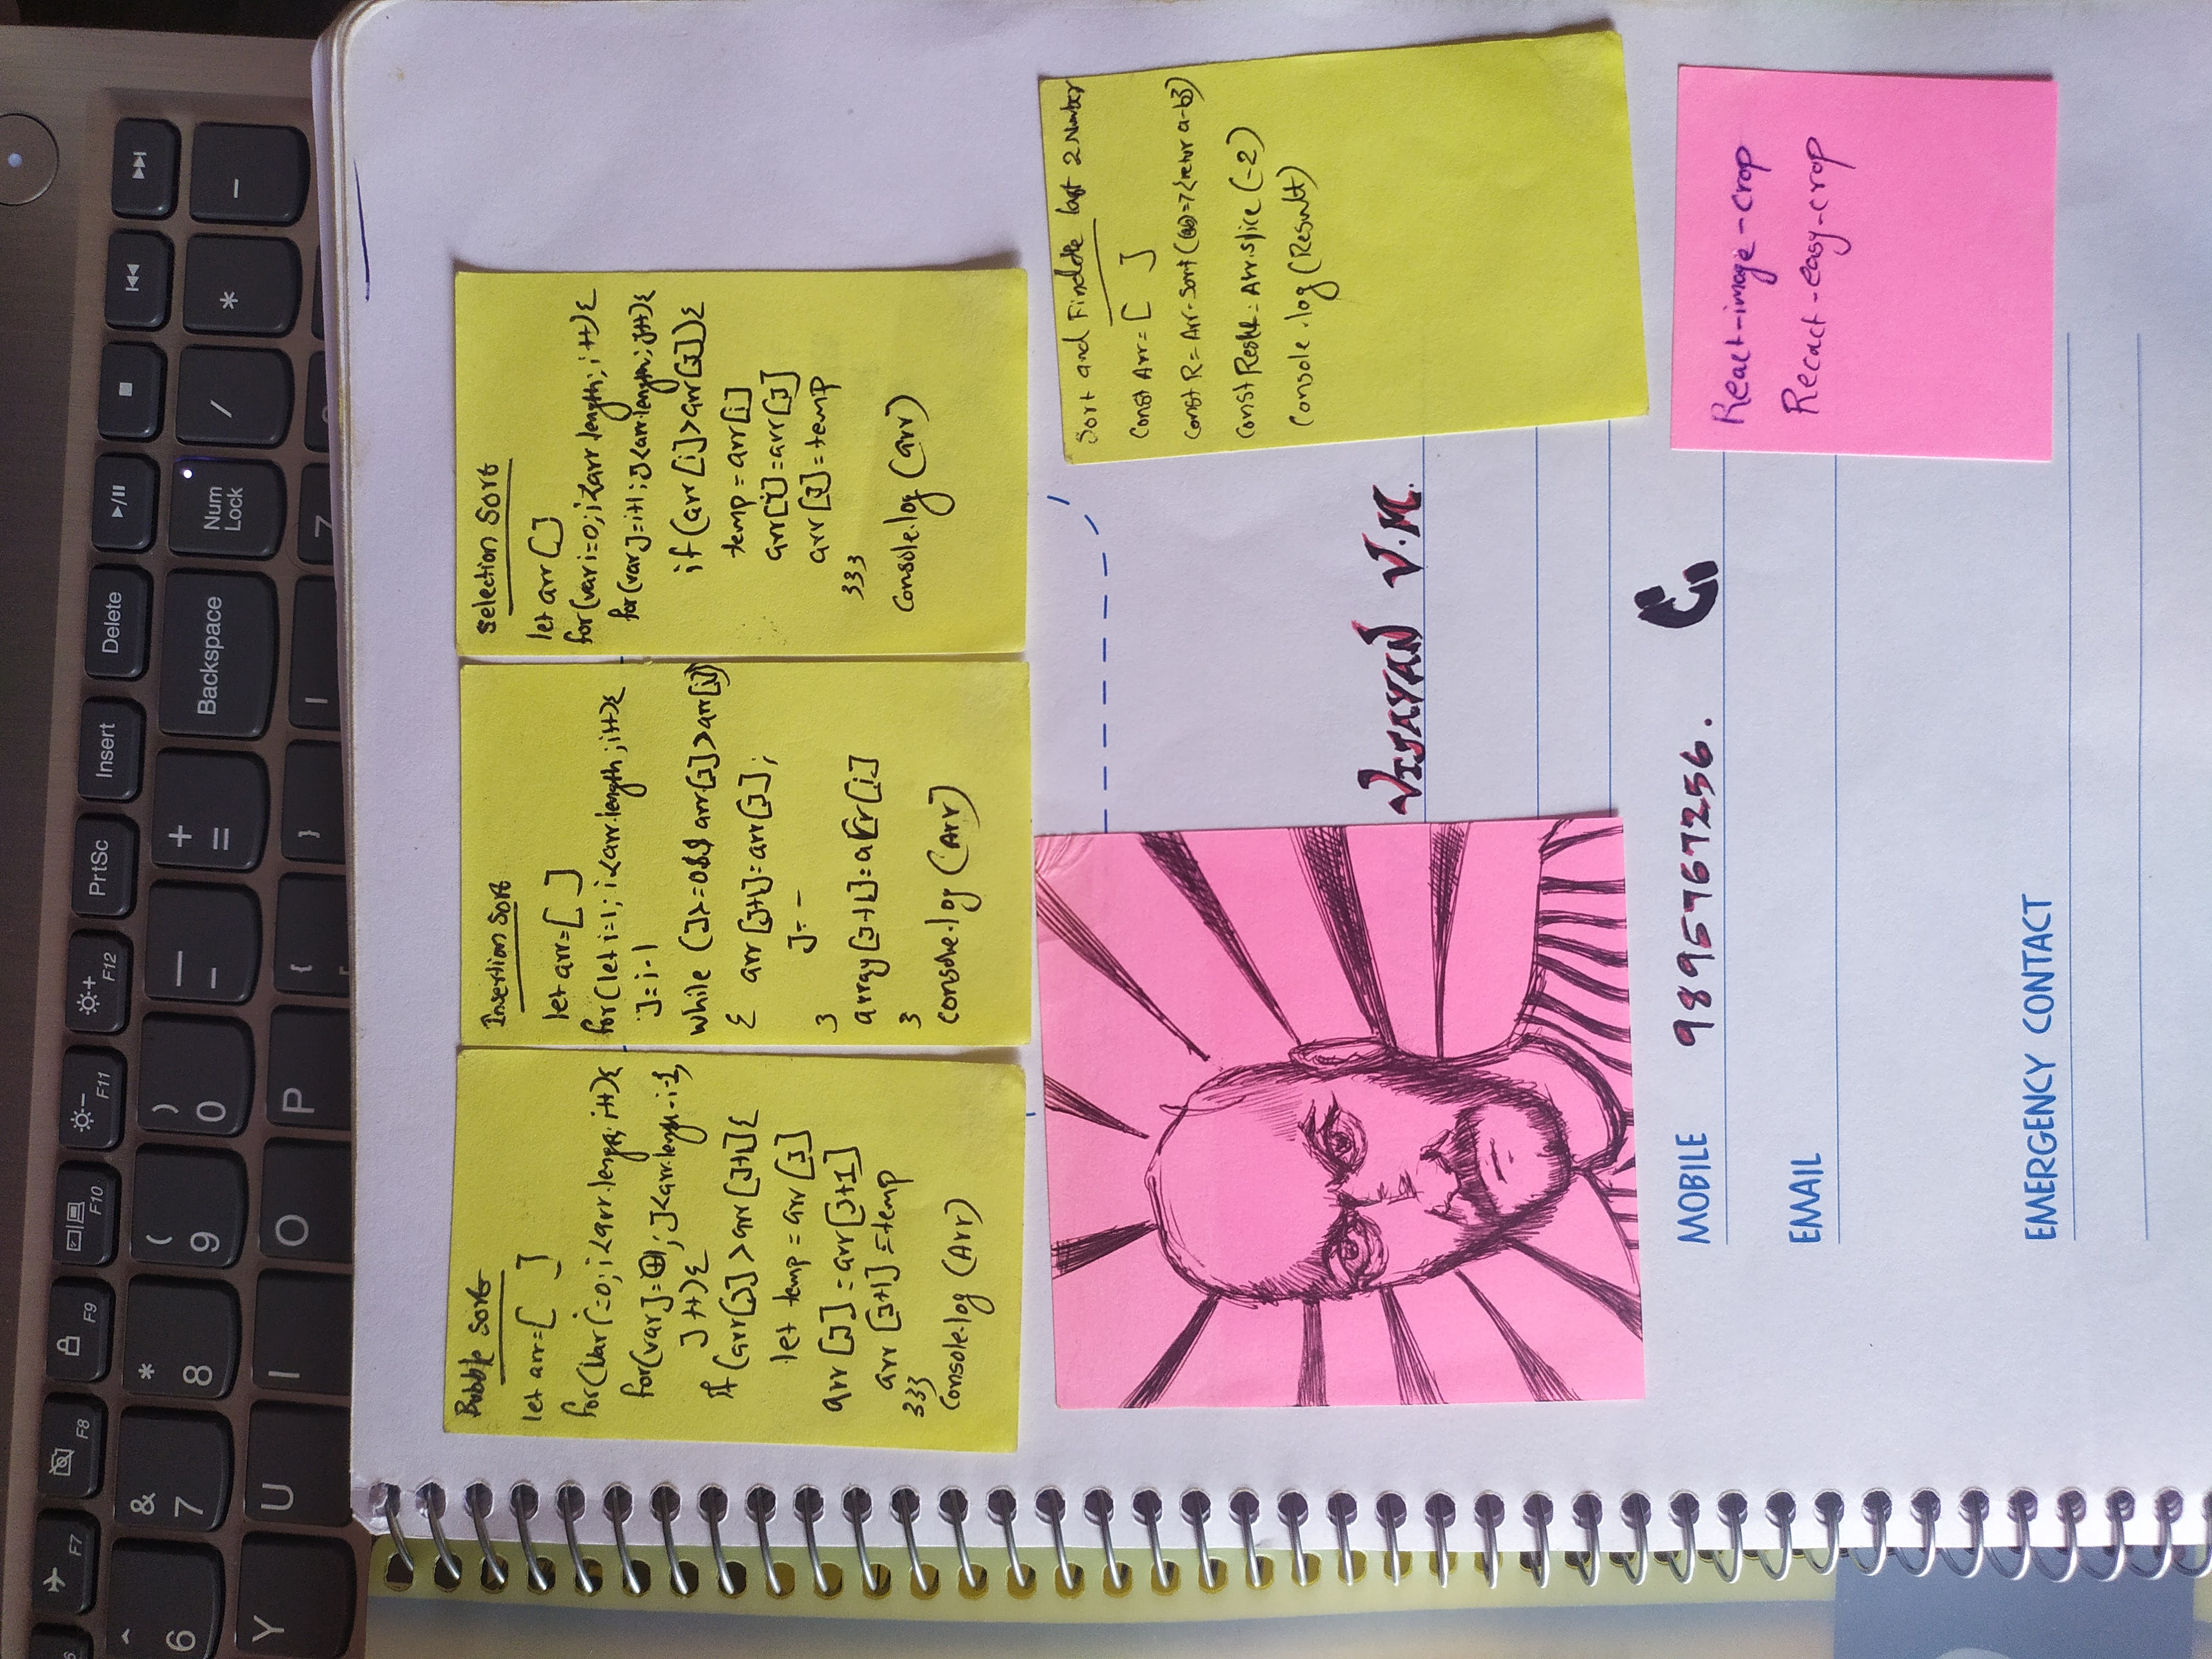 F7
F8
F9
F10
F11
F12
PrtSc
Insert
Delete
^
6
&
7
*
8
(
9
)
0
—
-
+
=
Backspace
Num
Lock
/
*
-
Y
U
I
O
P
{
[
}
|
7
Bubble Sort
let arr=[ ]
for(var i=0; i<arr.length; i++){
for(var J= ; J<arr.length-i-1,
J++){
if (arr[J] >arr[J+1]{
let temp = arr[J]
arr[J] =arr[J+1]
arr [J+1] =temp
}}}
console.log (Arr)
Insertion Sort
let arr=[ ]
for(let i=1; i<arr.length ;i++){
J=i-1
while (J>=0 && arr[J]>arr[i])
{ arr[J+1]=arr[J];
J--
}
array[J+1]=arr[i]
}
console.log (Arr)
Selection Sort
let arr[]
for(var i=0;i<arr length; i++){
for(var J=i+1;J<arr.length; J++){
if (arr [i]>arr[J]){
temp =arr[i]
arr[i]=arr[J]
arr [J]=temp
}}}
console.log (arr)
Sort and Find the last 2 Number
const Arr=[ ]
const R= Arr.Sort( =>{retur a-b})
const Result= Arr.slice (-2)
Console.log(Result)
VIJAYAN V.M.
MOBILE 9895767256.
React-image-crop
Recact-easy-crop
EMAIL
EMERGENCY CONTACT